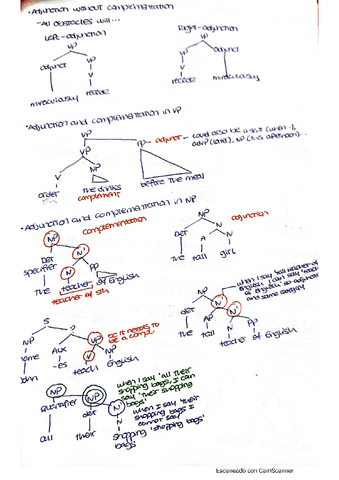 ·Adjunction without complementation
-All obstacles will...
Left-adjunction
Right-adjunction
VP
VP
adjunct
VP
VP
adjunct
V
V
miraculously
recede
recede
miraculously
·Adjunction and complementation in VP
VP
VP
PP
adjunct
could also be a
(when..),
V
NP
order
the drinks
before the meal
complement
·Adjunction and complementation in NP
complementation
adjunction
NP
NP
Det
N'
Det
N
specifier
N
PP
A
N
the
teacher
of English
the
tall
girl
teacher of sth
when I say
of English, I can say
of English
and same category
S
NP
VP
bc it needs to
be a compl.
NP
N'
det
AP
N'
Name
Aux
V
NP
the
tall
N
PP
John
-es
teach
English
teacher
of English
NP
NP
N'
quantifier
det
N
all
their
shopping bags
when I say 'all their
shopping bags, I can
say 'their shopping
bags'
when I say 'their
shopping bags I
cannot say
'shopping bags'
Escaneado con CamScanner